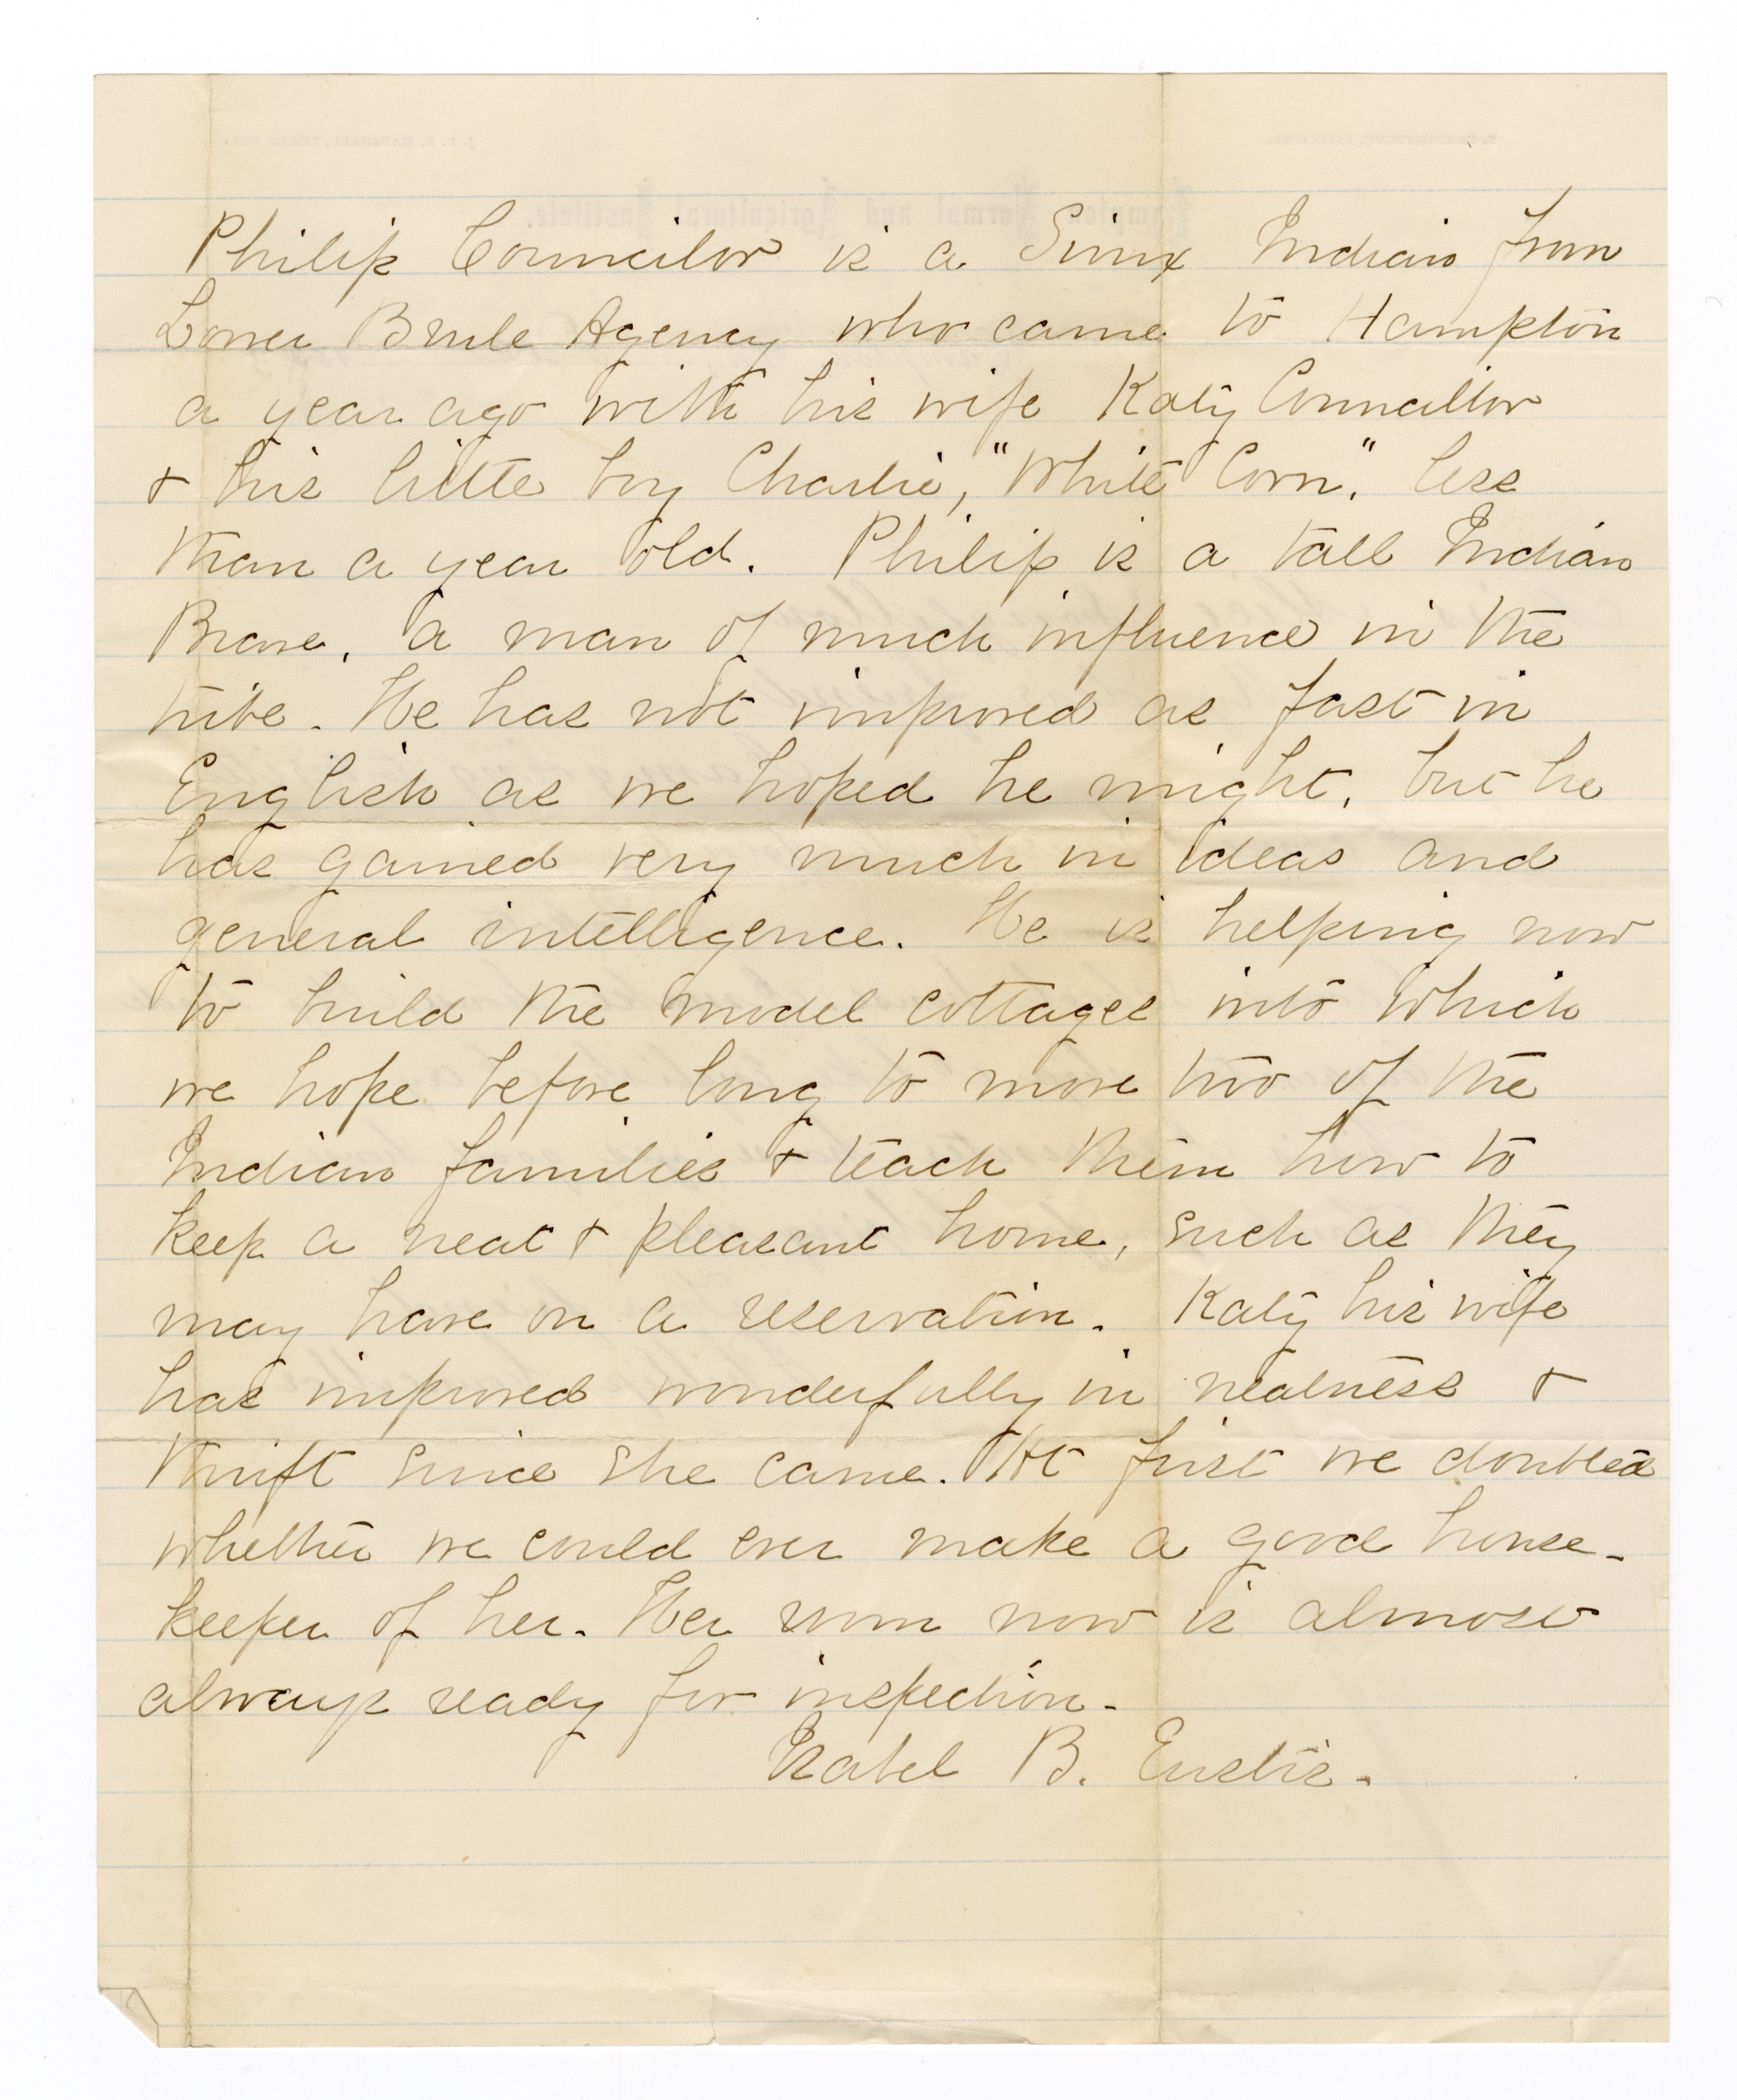 Philip Councilor is a Sioux Indian from
Lower Brule Agency who came to Hampton
a year ago with his wife Katy Councillor
& his little boy Charlie, "White Corn," less
than a year old. Philip is a tall Indian
Brave, a man of much influence in the
tribe. He has not improved as fast in
English as we hoped he might, but he
has gained very much in ideas and
general intelligence. He is helping now
to build the model cottages into which
we hope before long to move two of the
Indian families & teach them how to
keep a neat & pleasant home, such as they
may have on a reservation. Katy his wife
has improved wonderfully in neatness &
thrift since she came. At first we doubted
whether we could ever make a good house-
keeper of her. Her room now is almost
always ready for inspection.
Isabel B. Eustis.